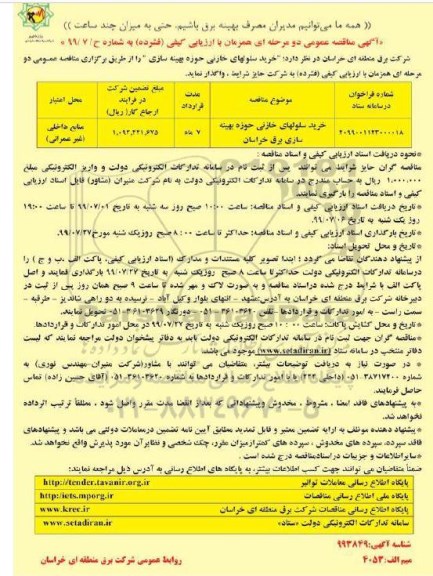 (( همه ما می‌توانیم مدیران مصرف بهینه برق باشیم. حتی به میزان چند ساعت ))
«آگهی مناقصه عمومی دو مرحله ای همزمان با ارزیابی کیفی (فشرده) به شماره ح/ ۷ /۹۹ »
شرکت برق منطقه ای خراسان در نظر دارد: "خرید سلولهای خازنی حوزه بهینه سازی " را از طریق برگزاری مناقصه عمومی دو
مرحله ای همزمان با ارزیابی کیفی (فشرده) به شرکت حایز شرایط ، واگذار نماید.
شماره فراخوان درسامانه ستاد
موضوع مناقصه
مدت قرارداد
مبلغ تضمین شرکت در فرایند ارجاع کار( ریال)
محل اعتبار
۲۰۹۹۰۰۱۱۲۳۰۰۰۰۱۸
خرید سلولهای خازنی حوزه بهینه سازی برق خراسان
۷ ماه
۱,۰۹۲,۴۴۱,۶۷۵
منابع داخلی (غیر عمرانی)
*نحوه دریافت اسناد ارزیابی کیفی و اسناد مناقصه :
مناقصه گران حایز شرایط می توانند پس از ثبت نام در سامانه تدارکات الکترونیکی دولت و واریز الکترونیکی مبلغ
۱.۰۰۰.۰۰۰ ریال به حساب مندرج در سامانه تدارکات الکترونیکی دولت به نام شرکت منیران (مشاور) فایل اسناد ارزیابی
کیفی و اسناد مناقصه را بارگیری نمایند.
*تاریخ دریافت اسناد ارزیابی کیفی و اسناد مناقصه: ساعت ۱۰:۰۰ صبح روز سه شنبه به تاریخ ۹۹/۰۷/۰۱ تا ساعت ۱۹:۰۰
روز یک شنبه به تاریخ ۹۹/۰۷/۰۶
*تاریخ بارگذاری اسناد ارزیابی کیفی و اسناد مناقصه: حداکثر تا ساعت ۸:۰۰ صبح روز یک شنبه مورخ ۹۹/۰۷/۲۷
*تاریخ و محل تحویل اسناد:
از پیشنهاد دهندگان تقاضا می گردد ؛ ابتدا تصویر کلیه مستندات و مدارک (اسناد ارزیابی کیفی، پاکت الف ،ب و ج ) را
درسامانه تدارکات الکترونیکی دولت حداکثر تا ساعت ۸ صبح روز یک شنبه به تاریخ ۹۹/۰۷/۲۷ بارگذاری نمایند و اصل
پاکت الف با شرایط درج شده در اسناد مناقصه و به صورت لاک و مهر شده تا ساعت ۹ صبح همان روز پس از ثبت در
دبیرخانه شرکت برق منطقه ای خراسان به آدرس:مشهد - انتهای بلوار وکیل آباد - نرسیده به دو راهی شاندیز - طرقبه -
سمت راست - به امور تدارکات و قراردادها- تلفن ۳۶۱۰۳۶۲۰-۰۵۱ - دورنگار ۳۶۱۰۳۶۲۹-۰۵۱ تحویل نمایند.
*تاریخ و محل گشایش پاکات: ساعت ۱۰:۰۰ صبح روز یک شنبه به تاریخ ۹۹/۰۷/۲۷ در محل امور تدارکات و قراردادها.
*مناقصه گران جهت ثبت نام در سامانه تدارکات الکترونیکی دولت باید به دفاتر پیشخوان دولت مراجعه نمایند که لیست
دفاتر منتخب در سامانه ستاد (www.setadiran.ir) موجود می باشد
* در صورت نیاز به دریافت توضیحات بیشتر، متقاضیان می توانند با مشاور(شرکت منیران-مهندس نوری) به
شماره ۳۸۷۱۷۴۰۰-۰۵۱ (داخلی ۲۲۴) یا امور تدارکات و قراردادها به شماره ۳۶۱۰۳۶۲۰-۰۵۱ (آقای حسین زاده) تماس
حاصل فرمایند.
*به پیشنهادهای فاقد امضا ، مشروط ، مخدوش وپیشنهاداتی که بعداز انقضا مدت مقرر واصل شود ، مطلقا ترتیب اثرداده
نخواهد شد.
*پیشنهاد دهنده موظف به ارایه تضمین معتبر و قابل تمدید مطابق آیین نامه تضمین درمعاملات دولتی می باشد و پیشنهادهای
فاقد سپرده، سپرده های مخدوش ، سپرده های کمترازمیزان مقرر، چک شخصی و نظایرآن مورد پذیرش واقع نخواهد شد.
*سایراطلاعات و جزییات دراسنادمناقصه درج شده است .
ضمناً متقاضیان می توانند جهت کسب اطلاعات بیشتر، به پایگاه های اطلاع رسانی به آدرس ذیل مراجعه نمایند:
پایگاه اطلاع رسانی معاملات توانیر http://tender.tavanir.org.ir
پایگاه ملی اطلاع رسانی مناقصات http://iets.mporg.ir
پایگاه اطلاع رسانی شرکت برق منطقه ای خراسان www.krec.ir
سامانه تدارکات الکترونیکی دولت «ستاد» www.setadiran.ir
شناسه آگهی:۹۹۳۸۴۹
میم الف:۴۰۵۳
روابط عمومی شرکت برق منطقه ای خراسان